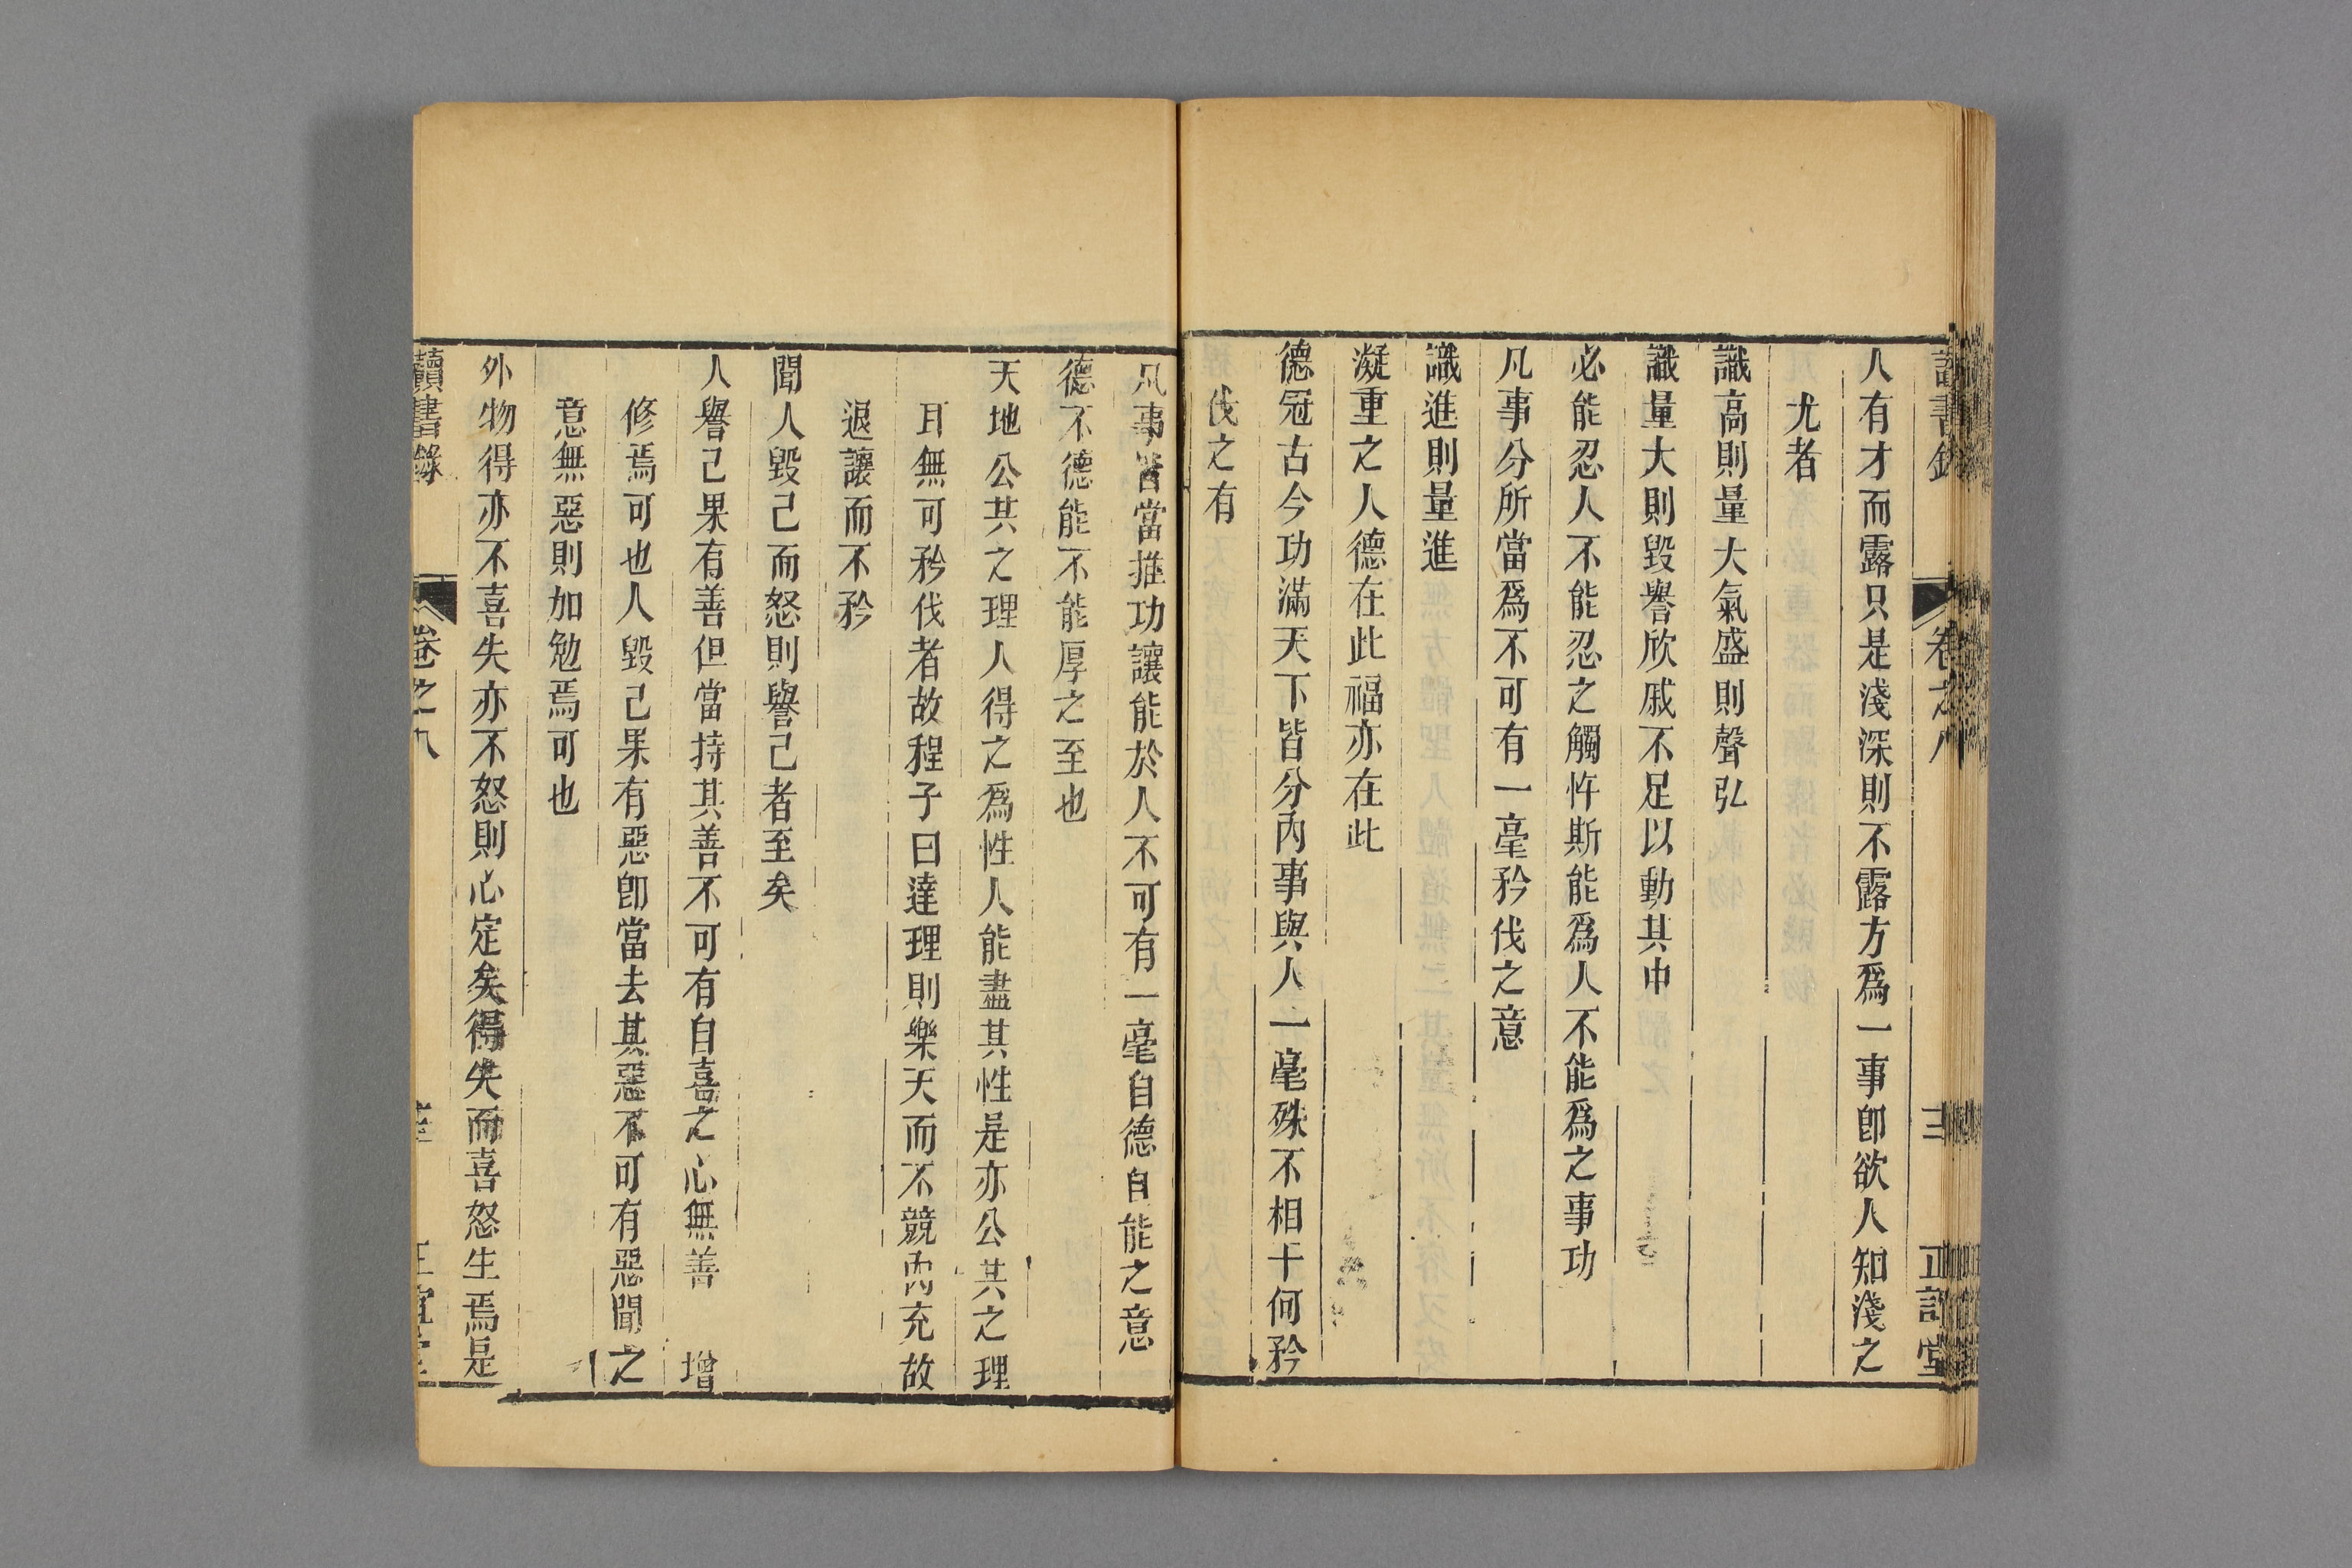 讀書錄 卷之八 三 正誼堂
人有才而露只是淺深則不露方爲一事卽欲人知淺之
尤者
識高則量大氣盛則聲弘
識量大則毀譽欣戚不足以動其中
必能忍人不能忍之觸忤斯能爲人不能爲之事功
凡事分所當爲不可有一毫矜伐之意
識進則量進
凝重之人德在此福亦在此
德冠古今功滿天下皆分內事與人一毫殊不相干何矜
伐之有
凡事皆當推功讓能於人不可有一毫自德自能之意
德不德能不能厚之至也
天地公其之理人得之爲性人能盡其性是亦公其之理
耳無可矜伐者故程子曰達理則樂天而不競內充故
退讓而不矜
聞人毀己而怒則譽己者至矣
人譽己果有善但當持其善不可有自喜之心無善 增
修焉可也人毀己果有惡卽當去其惡不可有惡聞之
意無惡則加勉焉可也
外物得亦不喜失亦不怒則心定矣得失而喜怒生焉是
讀書錄 卷之八